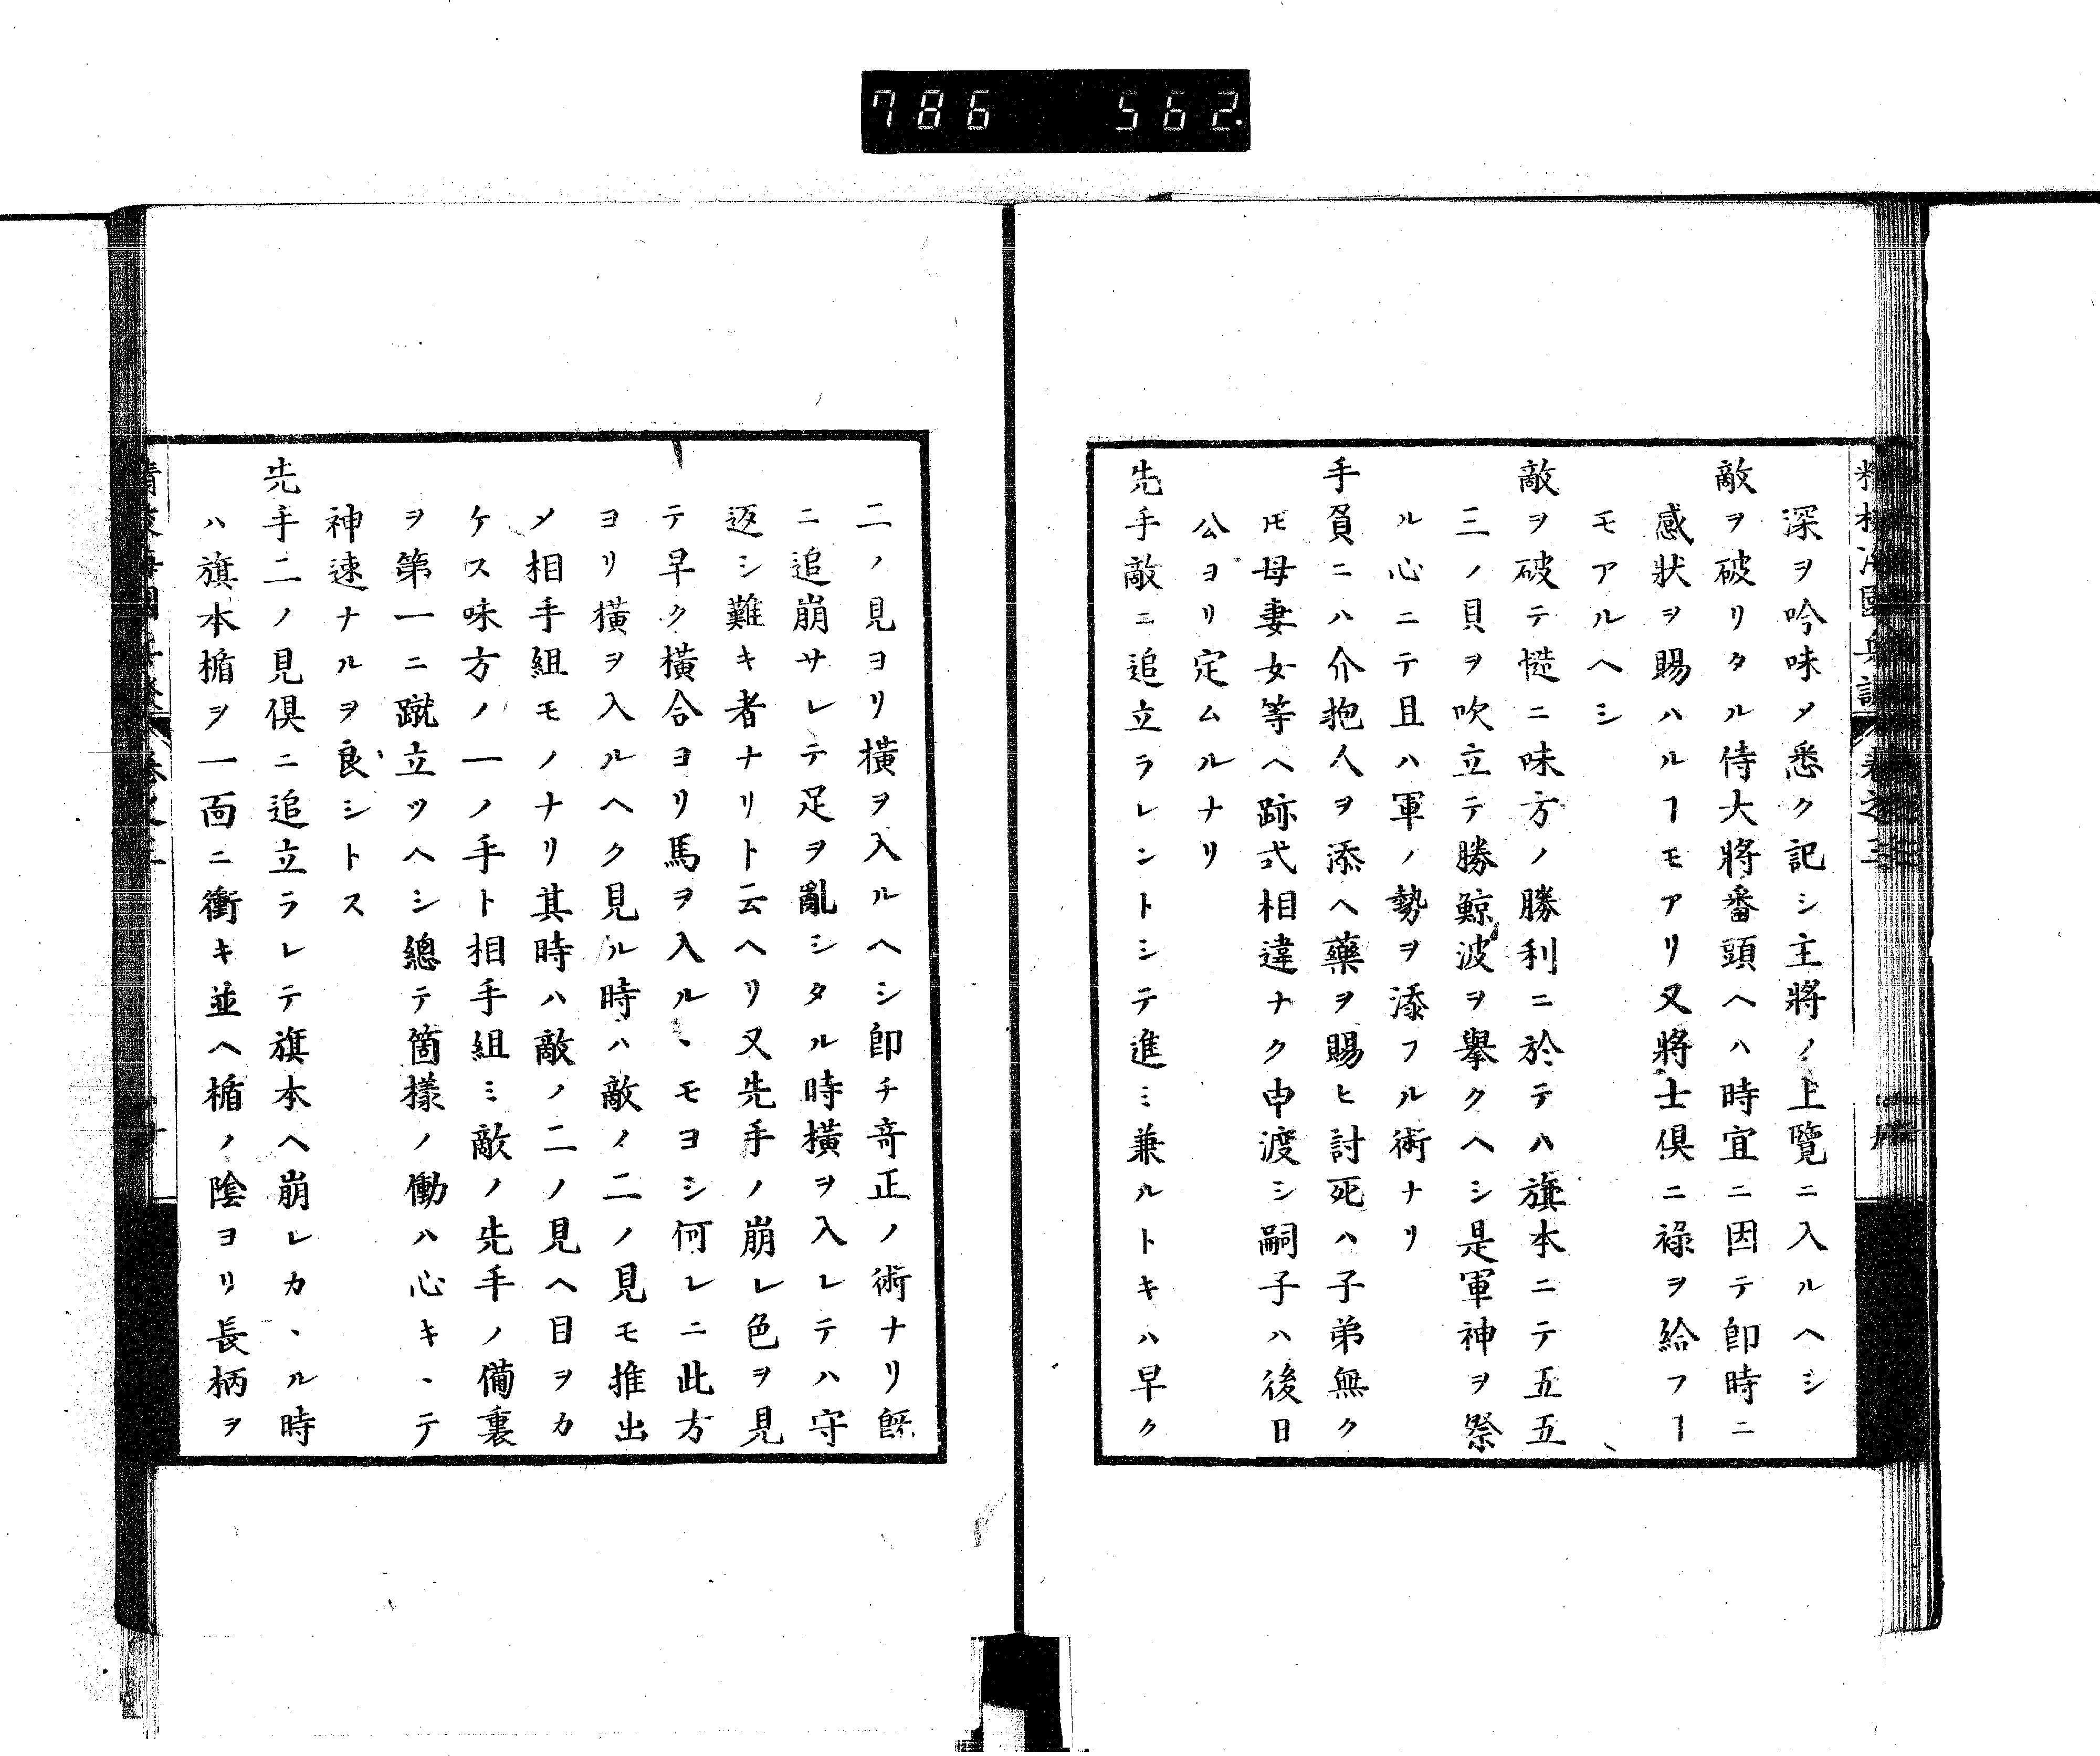 786 562.
深ヲ吟味メ悉ク記シ主將ノ上覽ニ入ルヘシ
敵ヲ破リタル侍大將番頭ヘハ時宜ニ因テ卽時ニ
感狀ヲ賜ハルヿモアリ又將士俱ニ祿ヲ給フヿ
モアルヘシ
敵ヲ破テ慥ニ味方ノ勝利ニ於テハ旗本ニテ五五
三ノ貝ヲ吹立テ勝鯨波ヲ擧クヘシ是軍神ヲ祭
ル心ニテ且ハ軍ノ勢ヲ添フル術ナリ
手負ニハ介抱人ヲ添ヘ藥ヲ賜ヒ討死ハ子弟無ク
𪜈母妻女等ヘ跡式相違ナク申渡シ嗣子ハ後日
公ヨリ定ムルナリ
先手敵ニ追立ラレントシテ進ミ兼ルトキハ早ク
二ノ見ヨリ橫ヲ入ルヘシ卽チ竒正ノ術ナリ旣
ニ追崩サレテ足ヲ亂シタル時橫ヲ入レテハ守
返シ難キ者ナリト云ヘリ又先手ノ崩レ色ヲ見
テ早ク橫合ヨリ馬ヲ入ルヽモヨシ何レニ此方
ヨリ橫ヲ入ルヘク見ル時ハ敵ノ二ノ見モ推出
メ相手組モノナリ其時ハ敵ノ二ノ見ヘ目ヲカ
ケス味方ノ一ノ手ト相手組ミ敵ノ先手ノ備裏
ヲ第一ニ蹴立ツヘシ總テ箇樣ノ働ハ心キヽテ
神速ナルヲ良シトス
先手二ノ見俱ニ追立ラレテ旗本ヘ崩レカヽル時
ハ旗本楯ヲ一面ニ衝キ並ヘ楯ノ陰ヨリ長柄ヲ